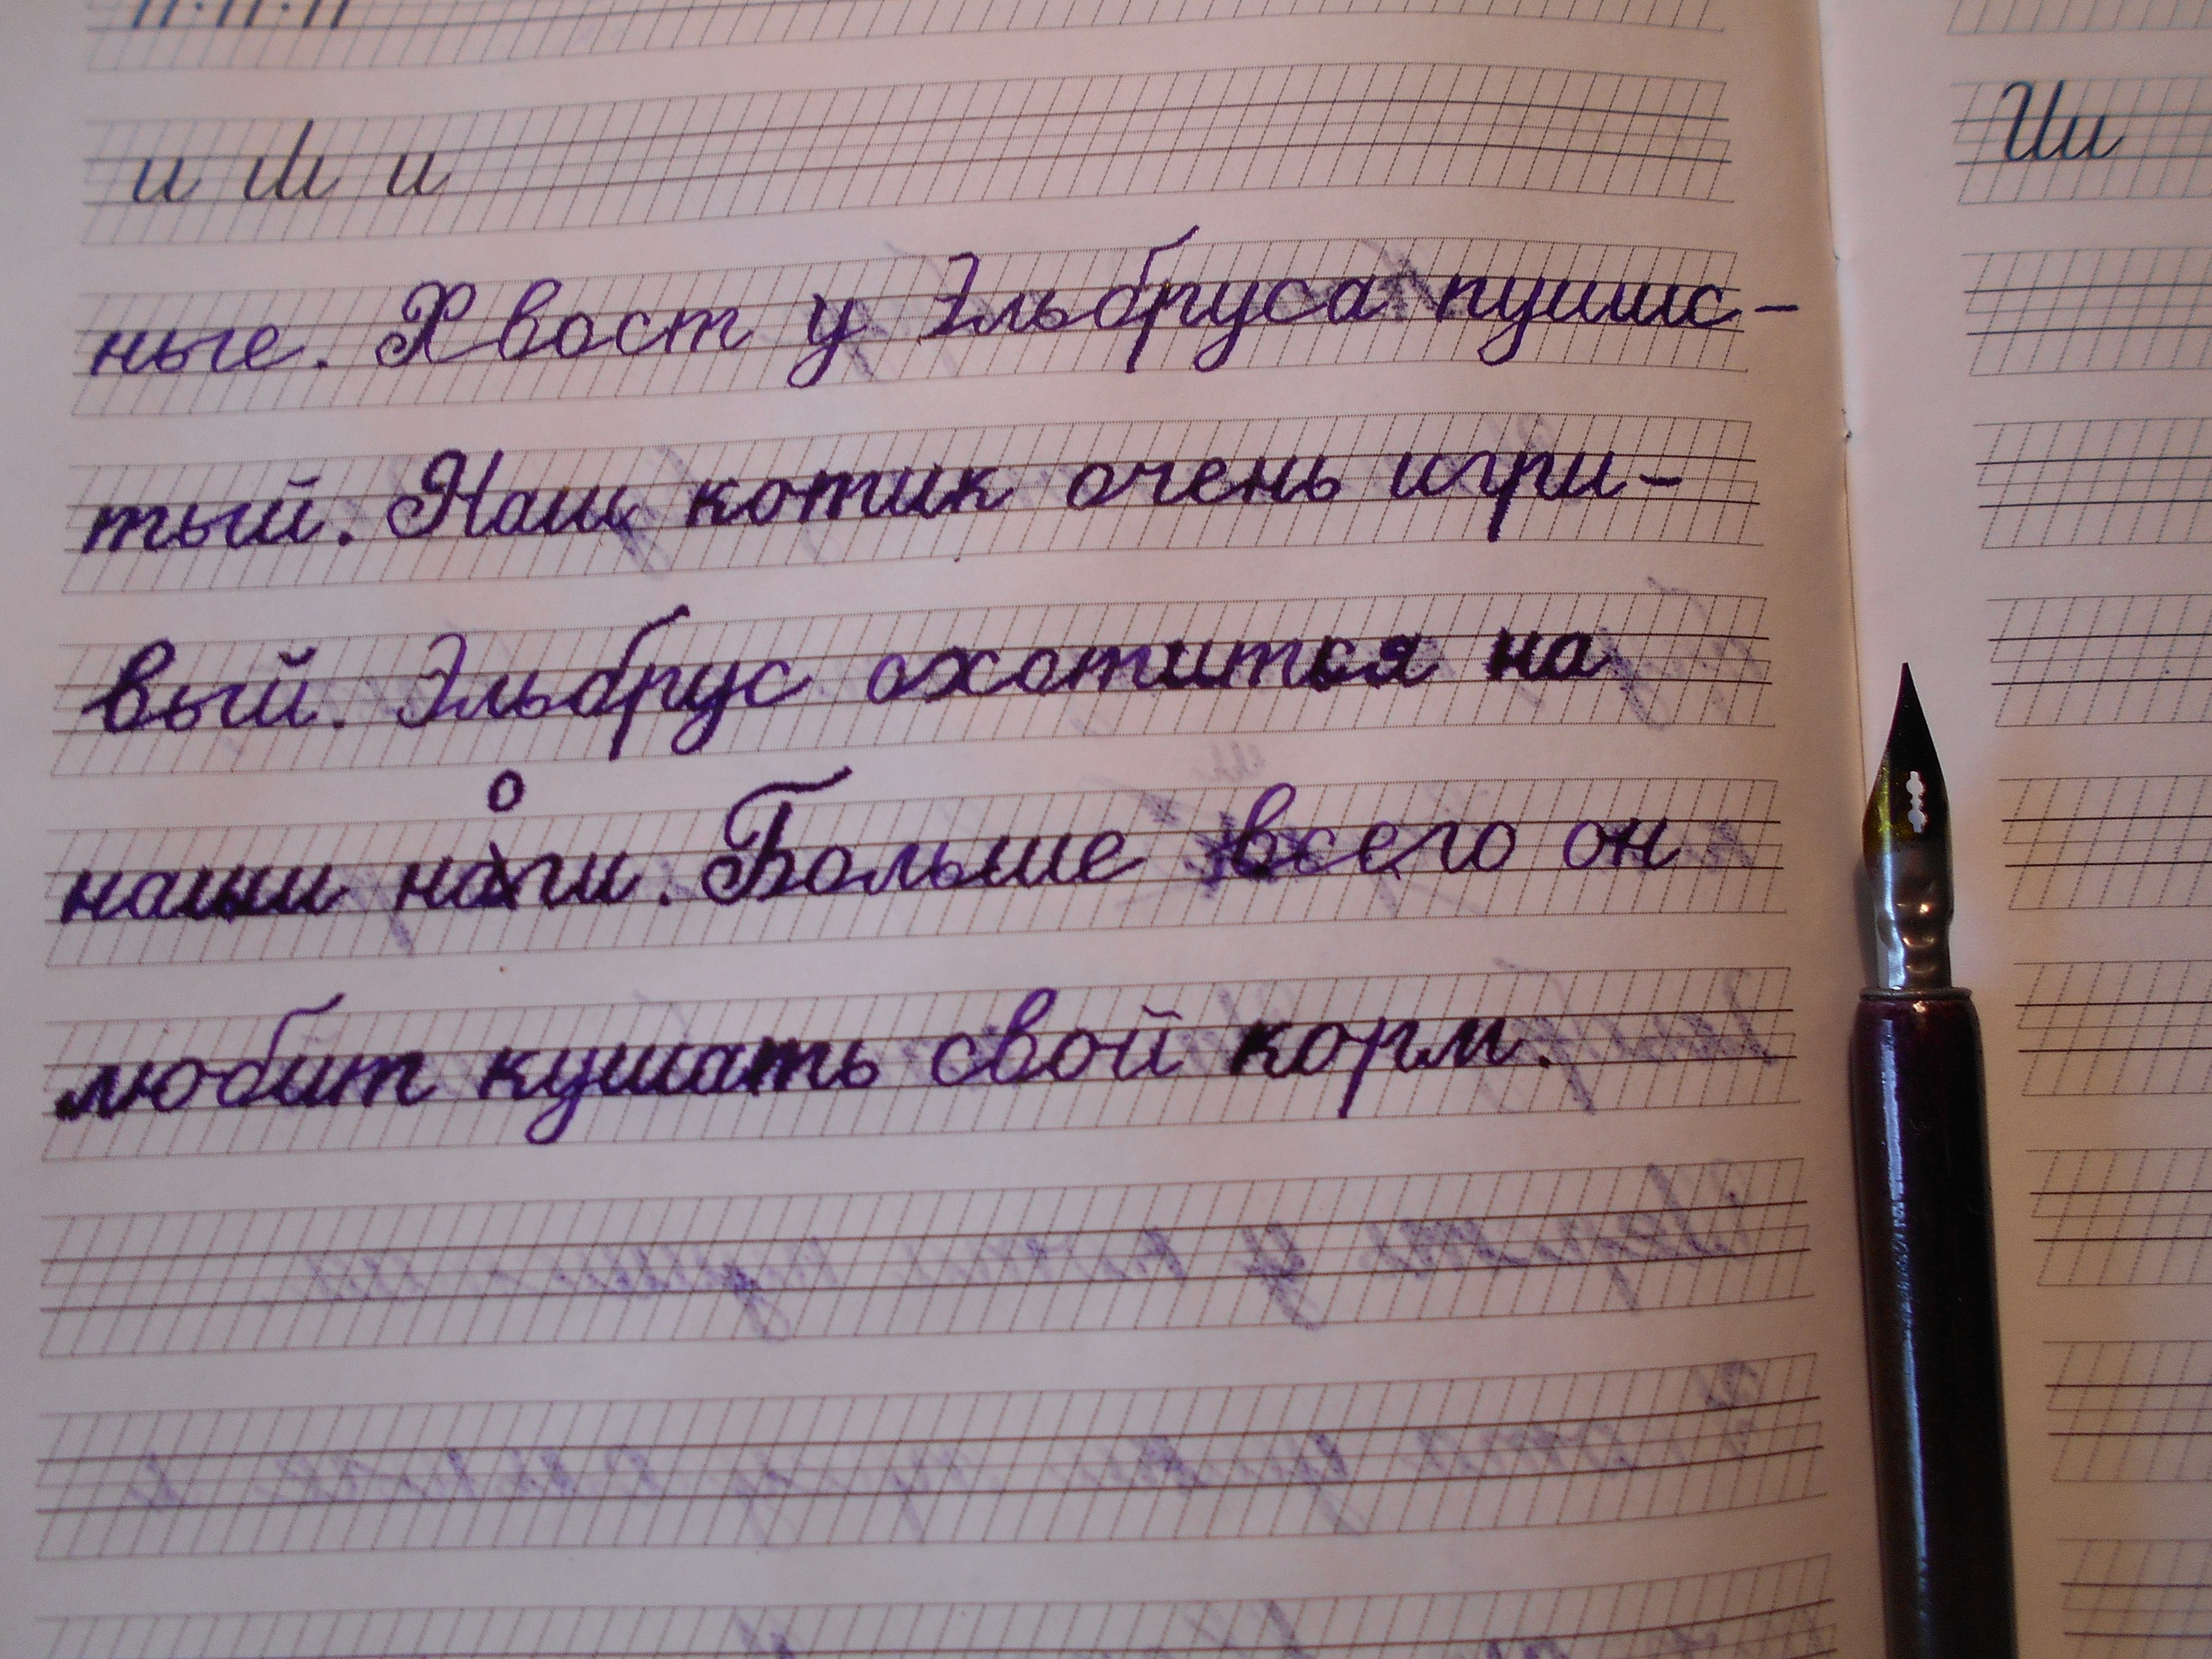 и ш и
Ии
ные. Хвост у Эльбруса пушис-
тый. Наш котик очень игри-
вый. Эльбрус охотится на
наши ноги. Больше всего он
любит кушать свой корм.